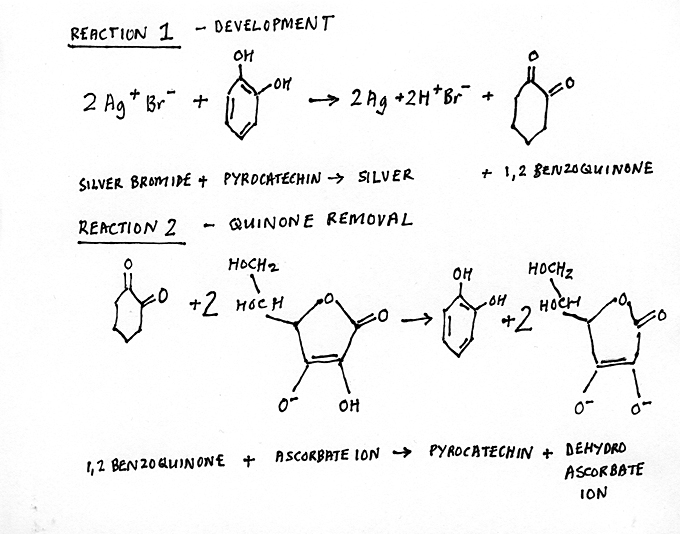 REACTION 1 - DEVELOPMENT
OH
OH
2 Ag⁺ Br⁻ + → 2 Ag + 2H⁺ Br⁻ +
O
O
SILVER BROMIDE + PYROCATECHIN → SILVER + 1,2 BENZOQUINONE
REACTION 2 - QUINONE REMOVAL
O
O
+ 2
HOCH2
HOCH
O
O
O⁻
OH
→
OH
OH
+ 2
HOCHZ
HOCH
O
O
O⁻
O⁻
1,2 BENZOQUINONE + ASCORBATE ION → PYROCATECHIN + DEHYDRO
ASCORBATE
ION